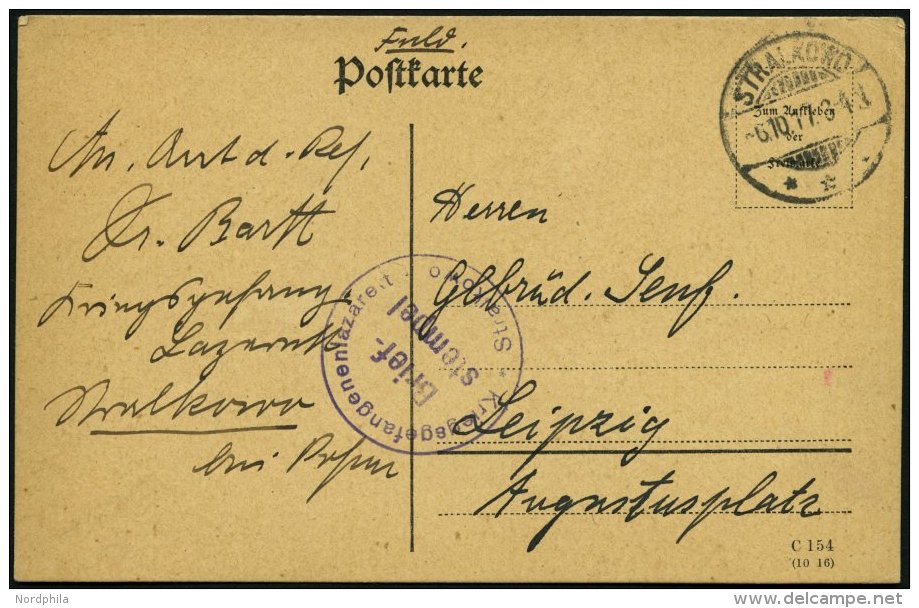 Feld.
Postkarte
STRALKOWO
-6.10.17. 3-4 N
Zum Aufkleben
der
Freimarke
An. Arzt d. Res.
Dr. Bartt
Kriegsgefang.
Lazarett
Stralkowo
bei Posen
Kriegsgefangenenlazarett * Stralkowo *
Brief-
stempel
Herren
Gebrüd. Senf.
Leipzig
Augustusplatz
C 154
(10 16)
Nordphila
delcampe.net